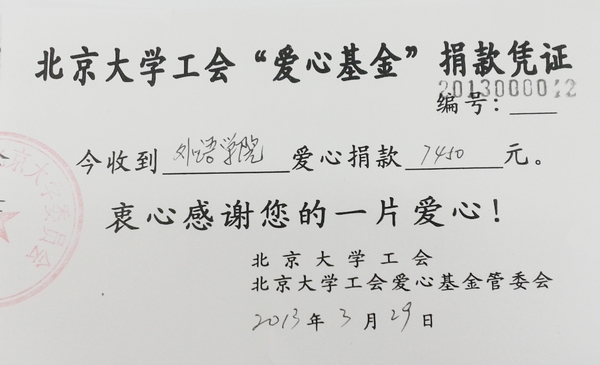 北京大学工会“爱心基金”捐款凭证
2013000012
编号:
今收到 外语学院 爱心捐款 7450 元。
衷心感谢您的一片爱心!
北京大学工会
北京大学工会爱心基金管委会
2013年3月29日